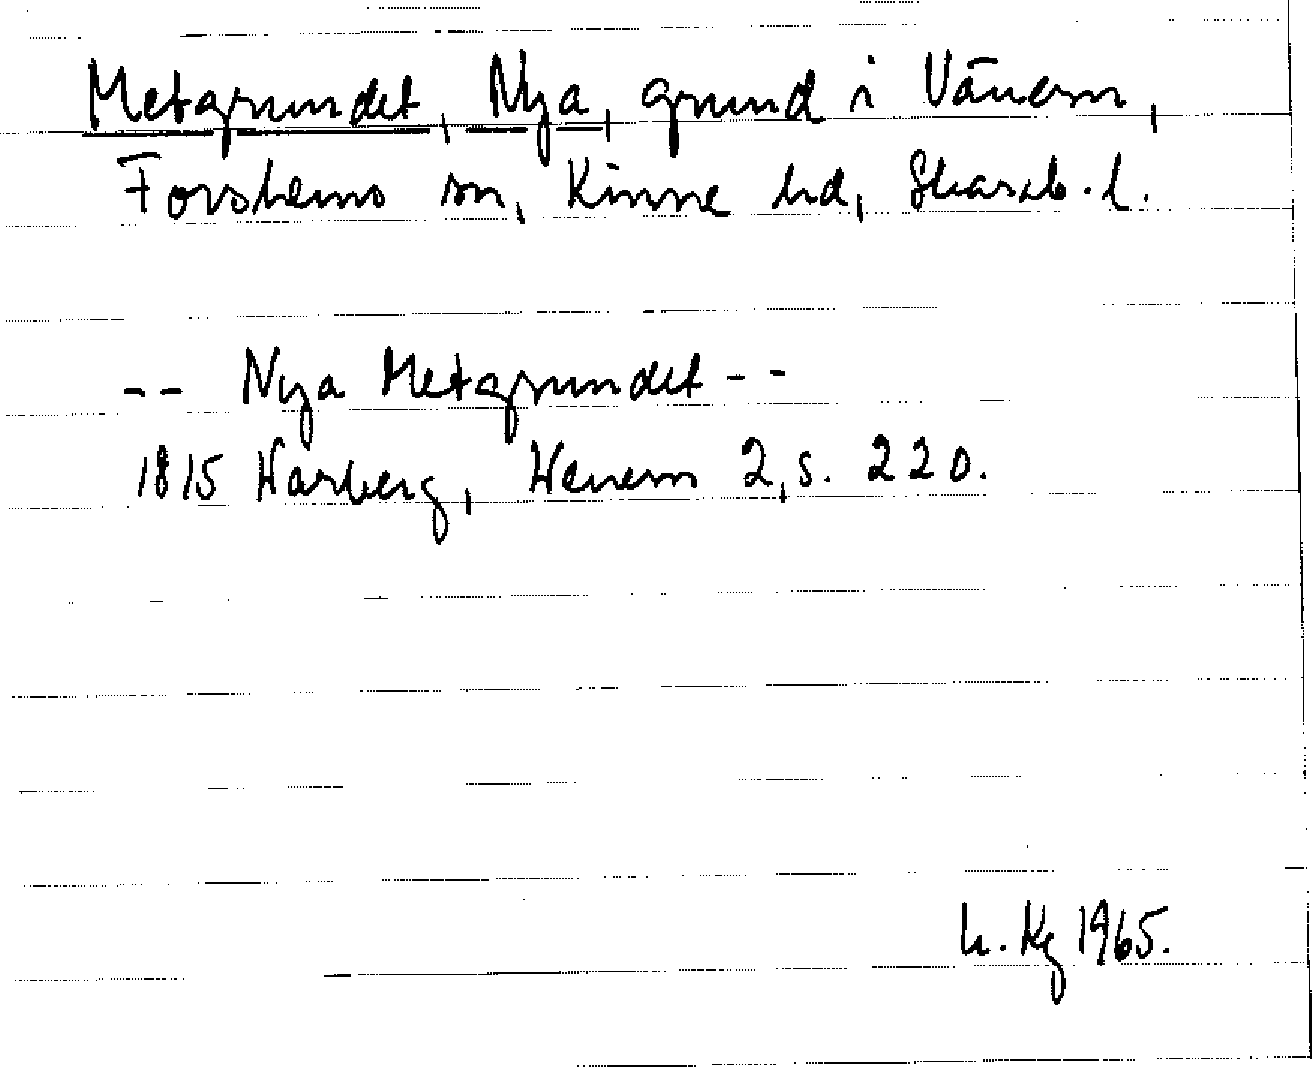 Metgrundet, Nya, grund i Vänern,
Forshems sn, Kinne hd, Skarab. l.
-- Nya Metgrundet --
1815 Warberg, Wenern 2, s. 220.
h. Kg 1965.